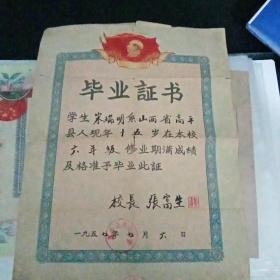 毕业証书
学生宋瑞明系山西省高平
县人现年十五岁在本校
六年级修业期满成绩
及格准予毕业此証
校長 張富生
一九五七年七月六日